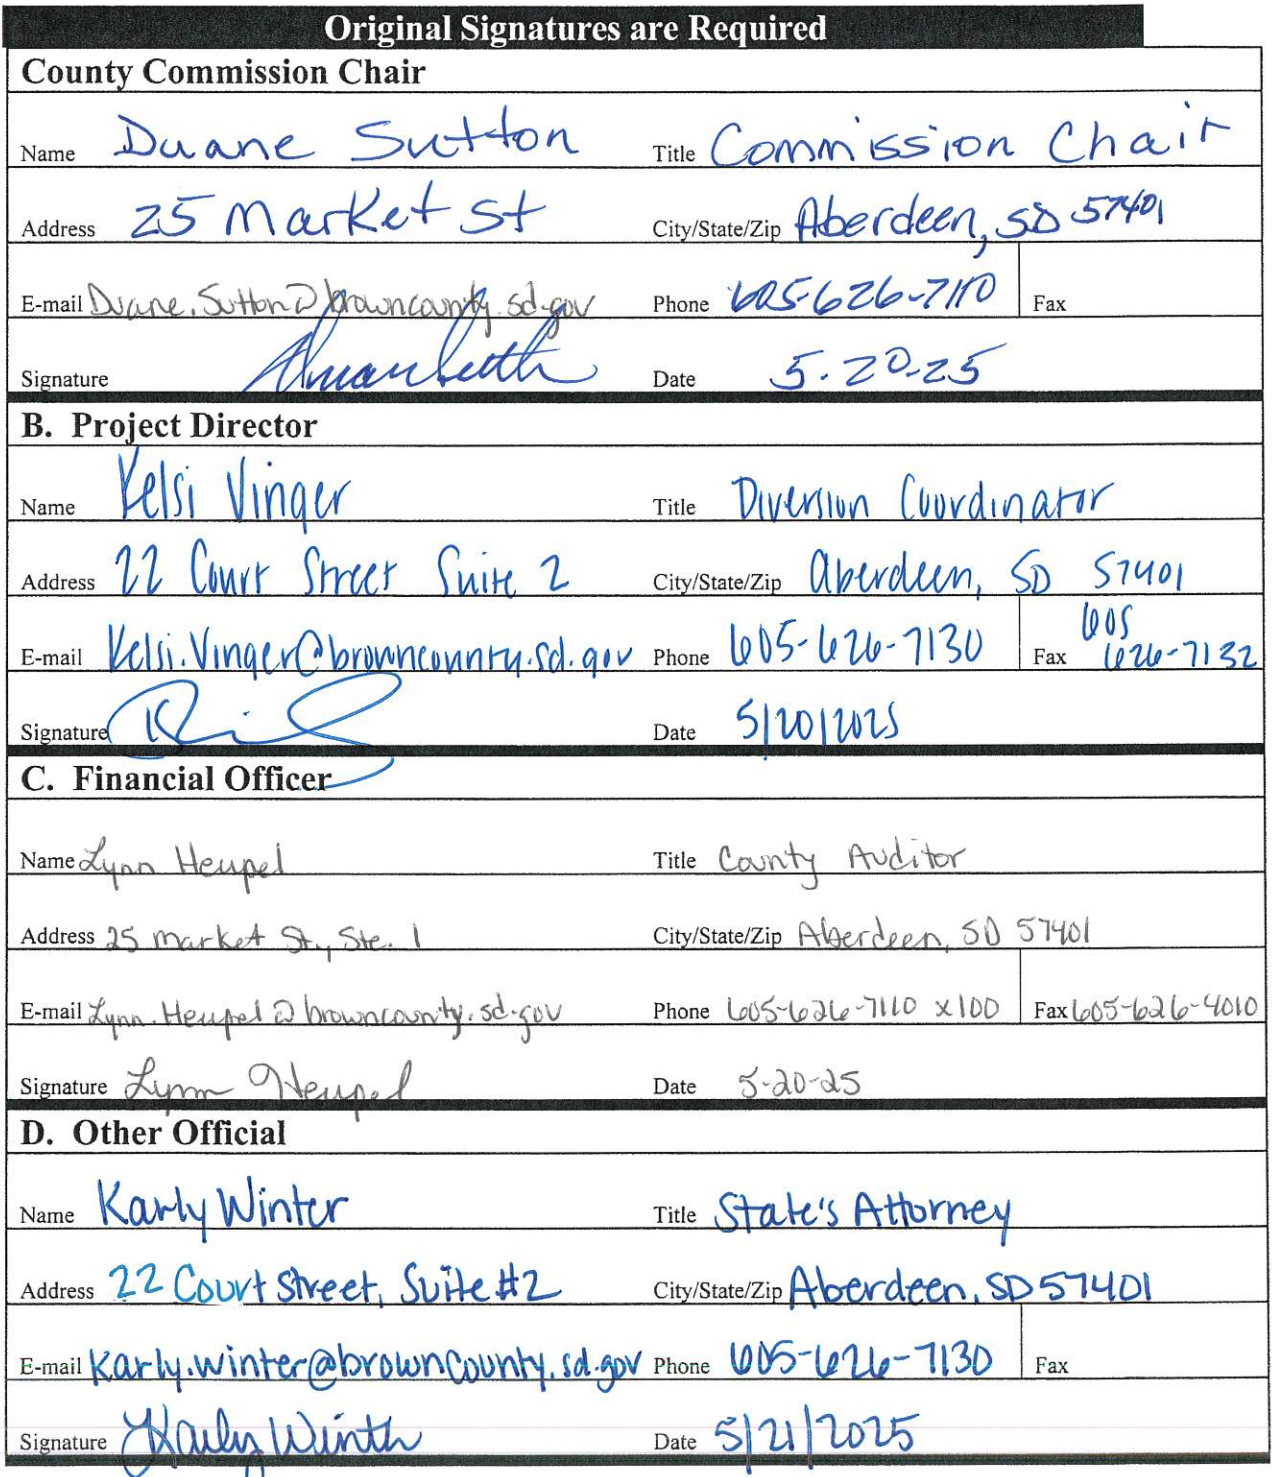 Original Signatures are Required
County Commission Chair
Name Duane Sutton Title Commission Chair
Address 25 Market St City/State/Zip Aberdeen, SD 57401
E-mail Duane.Sutton@browncounty.sd.gov Phone 605-626-7110 Fax
Signature Duane Sutton Date 5-20-25
B. Project Director
Name Kelsi Vinger Title Diversion Coordinator
Address 22 Court Street Suite 2 City/State/Zip Aberdeen, SD 57401
E-mail Kelsi.Vinger@browncounty.sd.gov Phone 605-626-7130 Fax 605 626-7132
Signature Date 5/20/2025
C. Financial Officer
Name Lynn Heupel Title County Auditor
Address 25 Market St., Ste. 1 City/State/Zip Aberdeen, SD 57401
E-mail Lynn.Heupel@browncounty.sd.gov Phone 605-626-7110 x100 Fax 605-626-4010
Signature Lynn Heupel Date 5-20-25
D. Other Official
Name Karly Winter Title State's Attorney
Address 22 Court Street, Suite #2 City/State/Zip Aberdeen, SD 57401
E-mail Karly.winter@browncounty.sd.gov Phone 605-626-7130 Fax
Signature Karly Winter Date 5/21/2025